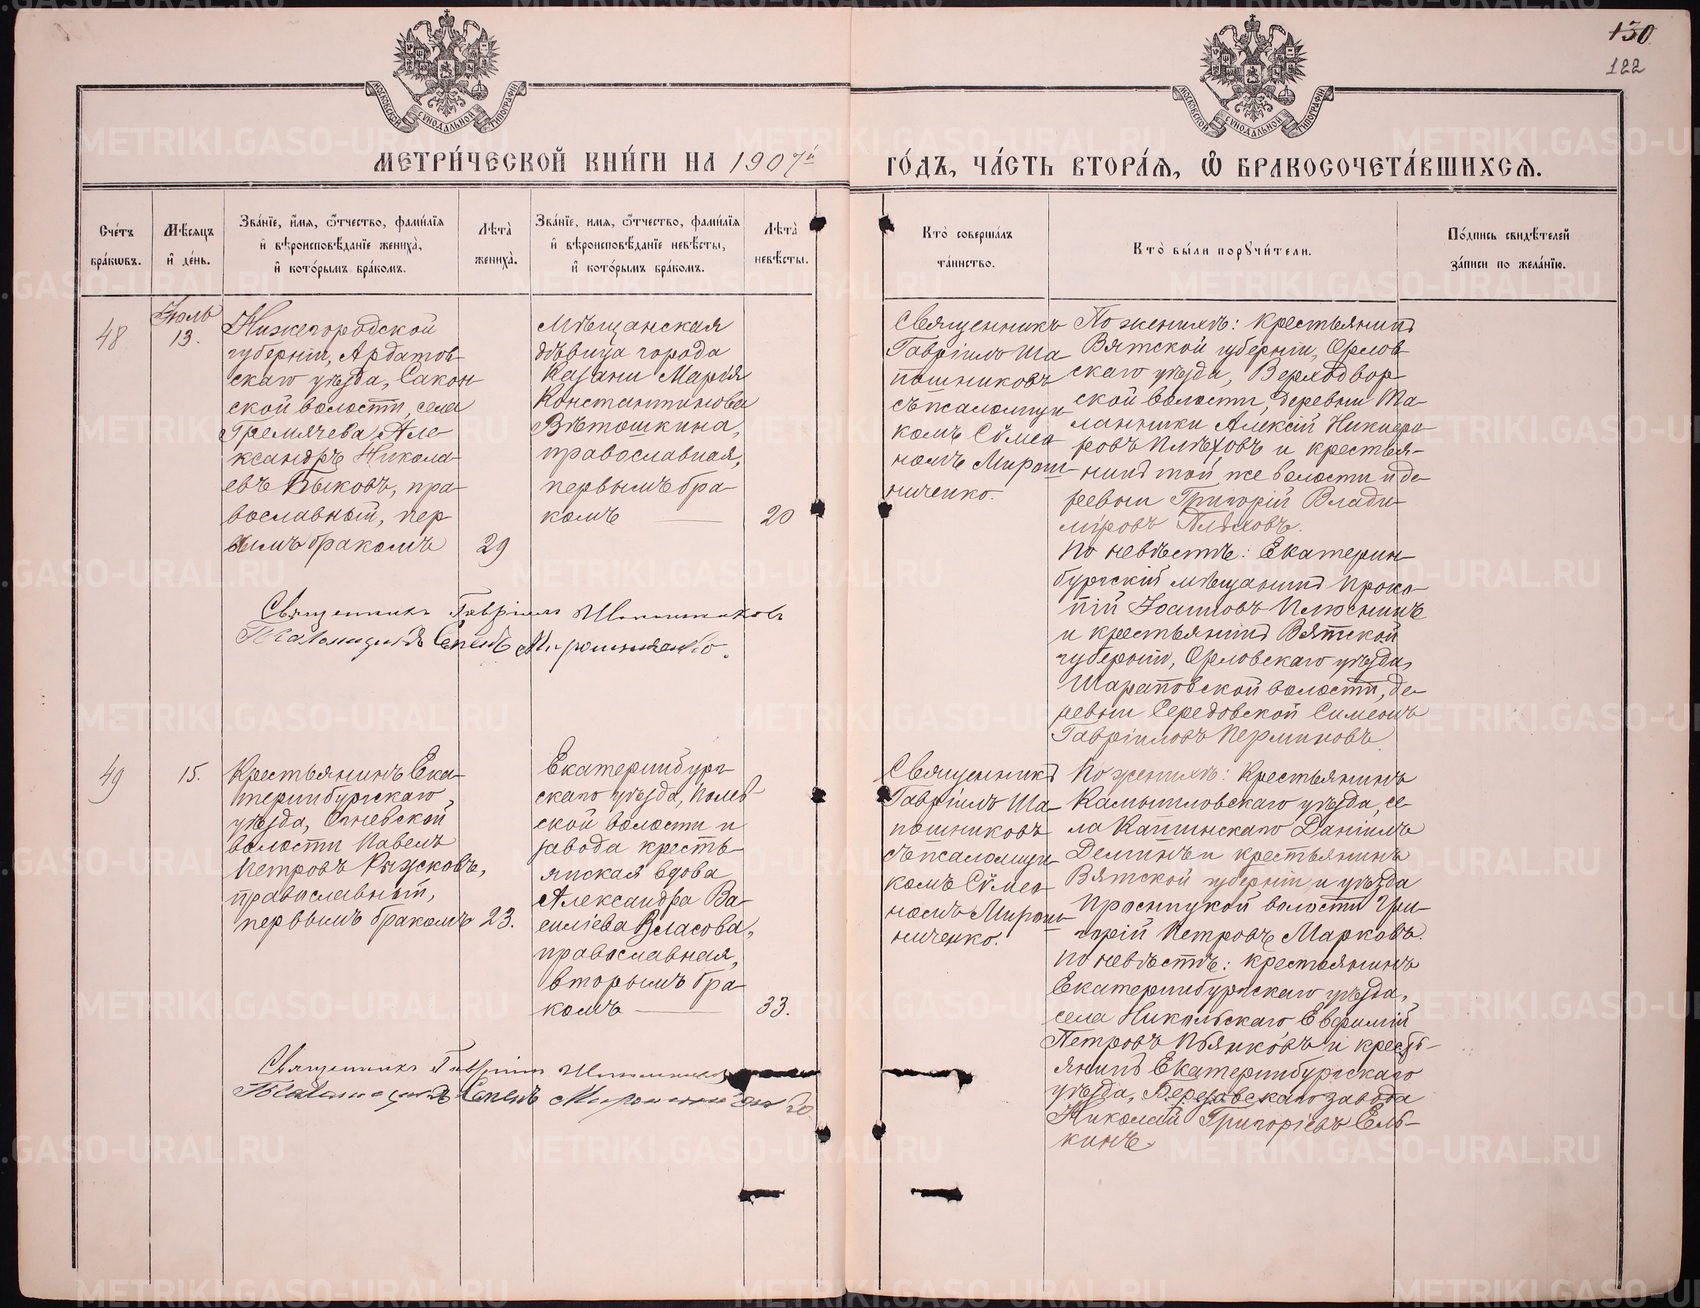 130
122
МЕТРИ́ЧЕСКОЙ КНИ́ГИ НА 1907й
ГО́ДЪ, ЧА́СТЬ ВТОРА́Я, Ѿ БРАКОСОЧЕТА́ВШИХСЯ.
Сче́тъ бра́кѡвъ.
Мѣ́сяцъ и де́нь.
Зва́нїе, и́мя, ѻ҆́тчество, фами́лїя
и вѣроисповѣ́данїе жениха̀,
и кото́рымъ бра́комъ.
Лѣ́та жениха̀.
Зва́нїе, и́мя, ѻ҆́тчество, фами́лїя
и вѣроисповѣ́данїе невѣ́сты,
и кото́рымъ бра́комъ.
Лѣ́та невѣ́сты.
Кто̀ соверша́лъ
та́инство.
Кто̀ бы́ли порꙋчи́тели.
По́дпись свидѣ́телей
за́писи по жела́нїю.
48
Іюль
13.
Нижегородской
губерніи, Ардатов-
скаго уѣзда, Сакон-
ской волости, села
Гремячева Але-
ксандръ Никола-
евъ Быковъ, пра-
вославный, пер-
вымъ бракомъ
29
Мѣщанская
дѣвица города
Казани Марія
Константинова
Вѣтошкина,
православная,
первымъ бра-
комъ
20
Священникъ
Гавріилъ Ша-
пошниковъ
съ псаломщи-
комъ Сѵмео-
номъ Мирош-
ниченко.
По женихѣ: крестьянинъ
Вятской губерніи, Орлов-
скаго уѣзда, Верходвор-
ской волости, деревни Ма-
ланники Алексій Никифо-
ровъ Плѣховъ и крестья-
нинъ той же волости и де-
ревни Григорій Влади-
міровъ Плѣховъ.
По невѣстѣ: Екатерин-
бургскій мѣщанинъ Проко-
пій Іоанновъ Плюснинъ
и крестьянинъ Вятской
губерніи, Орловскаго уѣзда,
Шараповской волости, де-
ревни Середовской Симеонъ
Гавріиловъ Перминовъ.
Священникъ Гавріилъ Шапошниковъ
Псаломщикъ Сѵмеонъ Мирошниченко.
49
15.
Крестьянинъ Ека-
теринбургскаго
уѣзда, Огневской
волости Павелъ
Петровъ Рыжковъ,
православный,
первымъ бракомъ
23.
Екатеринбург-
скаго уѣзда, Полев-
ской волости и
завода кресть-
янская вдова
Александра Ва-
силіева Власова,
православная,
вторымъ бра-
комъ
33.
Священникъ
Гавріилъ Ша-
пошниковъ
съ псаломщи-
комъ Сѵмео-
номъ Мирош-
ниченко.
По женихѣ: Крестьянинъ
Камышловскаго уѣзда, се-
ла Данiилъ
Деминъ и крестьянинъ
Вятской губерніи и уѣзда
Просницкой волости Гри-
горій Петровъ Марковъ.
По невѣстѣ: крестьянинъ
Екатеринбургскаго уѣзда,
села Никольскаго Евфимій
Петровъ Пьянковъ и кресть-
янинъ Екатеринбургскаго
уѣзда, Березовскаго завода
Николай Григорьевъ Ель-
кинъ.
Священникъ Гавріилъ Шапошниковъ
Псаломщикъ Сѵмеонъ Мирошниченко